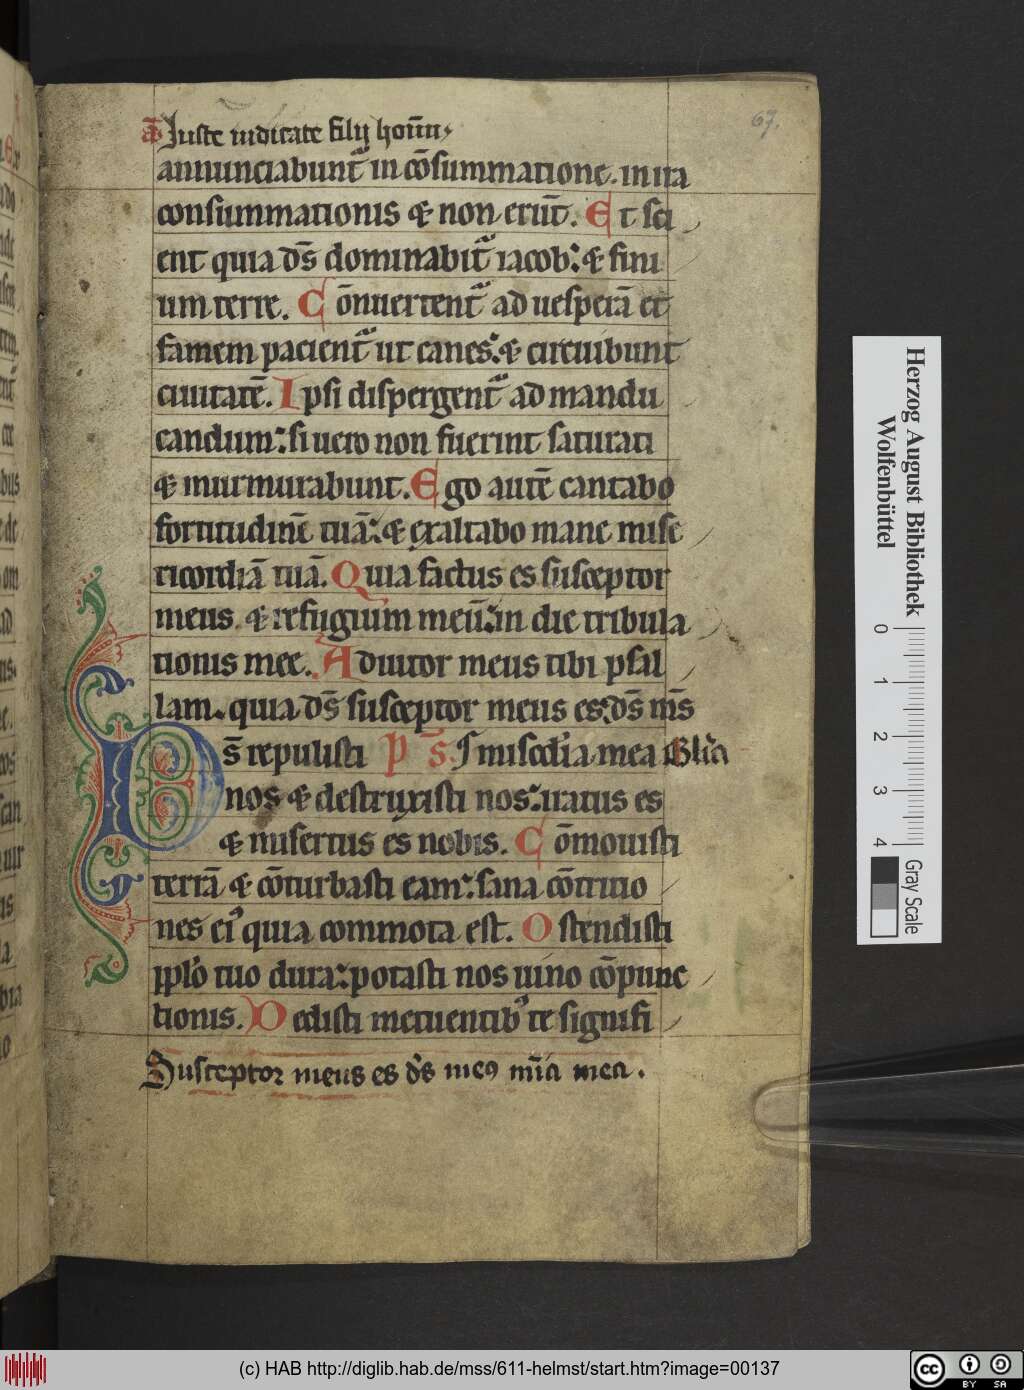 67.
Juste iudicate filij homn̄
annunciabunt᷑ in cōsummatione. in ira
consummationis & non erūt. Et sci
ent quia dn̄s dominabit᷑ iacob: & fini
um terre. Cōnuertent᷑ ad uesperā et
famem pacient᷑ ut canes: & circuibunt
ciuitatē. Ipsi dispergent᷑ ad mandu
candum: si uero non fuerint saturati
& murmurabunt. Ego autē cantabo
fortitudinē tuā: & exaltabo mane mise
ricordiā tuā. Quia factus es susceptor
meus. & refugium meū: in die tribula
tionis mee. Adiutor meus tibi psal
lam. quia ds̄ susceptor meus es: ds̄ ms̄
misc̄dia mea Gl̄ia
Ds̄ repulisti ps̄.
nos & destruxisti nos: iratus es
& misertus es nobis. Cōmouisti
terrā & cōturbasti eam: sana cōtritio
nes ei᷒ quia commota est. Ostendisti
pplo tuo dura: potasti nos uino cōpunc
tionis. Dedisti metuentib᷒ te signifi
Susceptor meus es ds̄ meꝯ mīa mea.
Herzog August Bibliothek
Wolfenbüttel
0 1 2 3 4
Gray Scale
(c) HAB http://diglib.hab.de/mss/611-helmst/start.htm?image=00137
cc BY SA